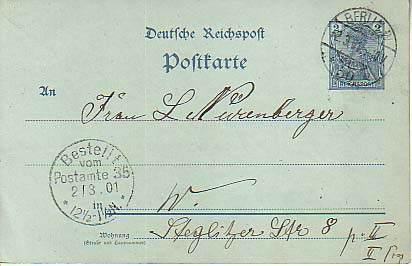 Deutsche Reichspost
Postkarte
BERLIN
An
Frau L Nürenberger
Bestellt
vom
Postamte 35
2/3.01
* 12½-1½N. *
W.
Steglitzer Str 8
Wohnung
(Straße und Hausnummer)
p. III
II